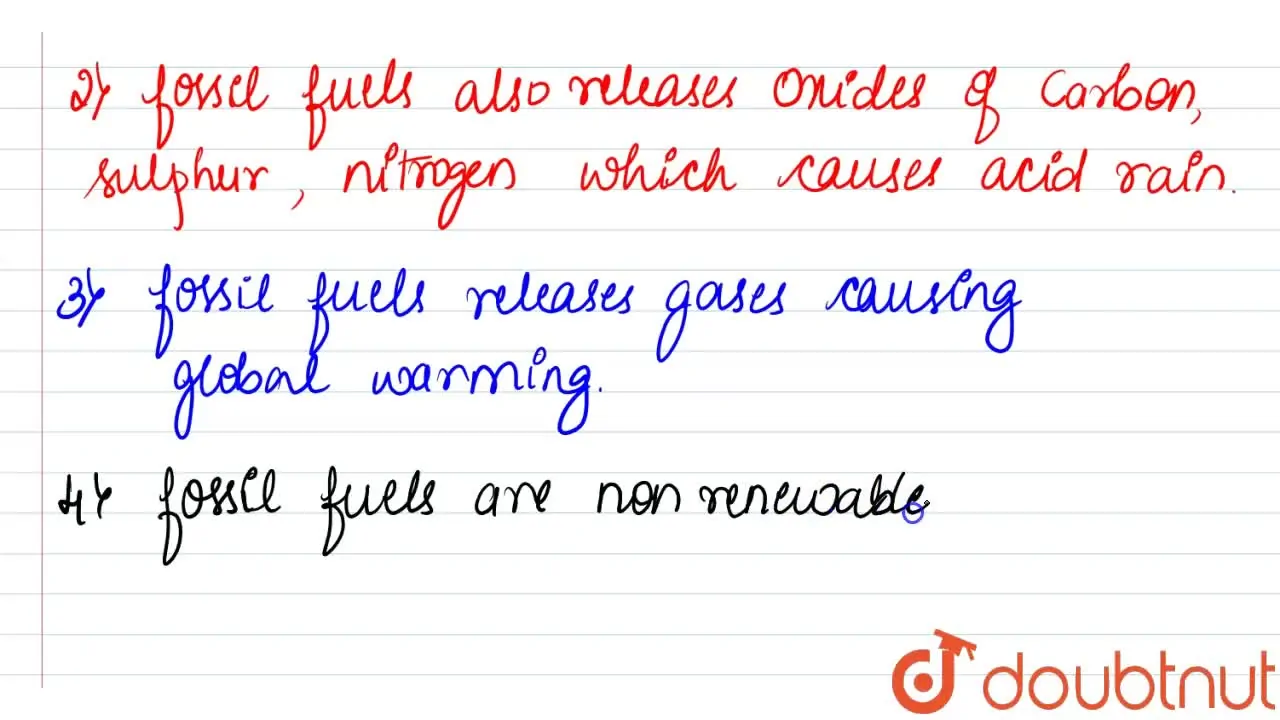 2) fossil fuels also releases Oxides of Carbon,
sulphur, nitrogen which causes acid rain.
3) fossil fuels releases gases causing
global warming.
4) fossil fuels are non renewable
doubtnut